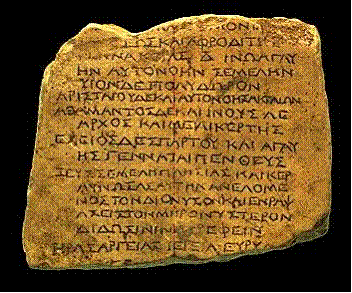 ΚΑΙ ΑΦΡΟΔΙΤΗΣ
ΙΝΩ ΑΓΑΥ
ΗΝ ΑΥΤΟΝΟΗΝ ΣΕΜΕΛΗΝ
ΥΙΟΝ ΔΕ ΠΟΛΥΔΩΡΟΝ
ΑΡΙΣΤΑΙΟΥ ΔΕ ΚΑΙ ΑΥΤΟΝΟΗΣ ΑΚΤΑΙΩΝ
ΑΘΑΜΑΝΤΟΣ ΔΕ ΚΑΙ ΙΝΟΥΣ ΛΕ
ΑΡΧΟΣ ΚΑΙ ΜΕΛΙΚΕΡΤΗΣ
ΕΧΕΙΟΣ ΔΕ ΣΠΑΡΤΟΥ ΚΑΙ ΑΓΑΥ
ΗΣ ΓΕΝΝΑΤΑΙ ΠΕΝΘΕΥΣ
ΖΕΥΣ ΣΕΜΕΛΗ ΠΛΗΣΙΑΣ ΚΑΙ ΚΕΡ
ΑΥΝΩΣΑΣ ΑΥΤΗΝ ΑΝΕΛΟΜΕ
ΝΟΣ ΤΟΝ ΔΙΟΝΥΣΟΝ ΚΑΙ ΕΝΡΑΨ
ΑΣ ΕΙΣ ΤΟΝ ΜΗΡΟΝ ΥΣΤΕΡΟΝ
ΔΙΔΩΣΙΝ ΤΡΕΦΕΙΝ
ΑΡΓΕΙΑΣ ΕΥΡΥ